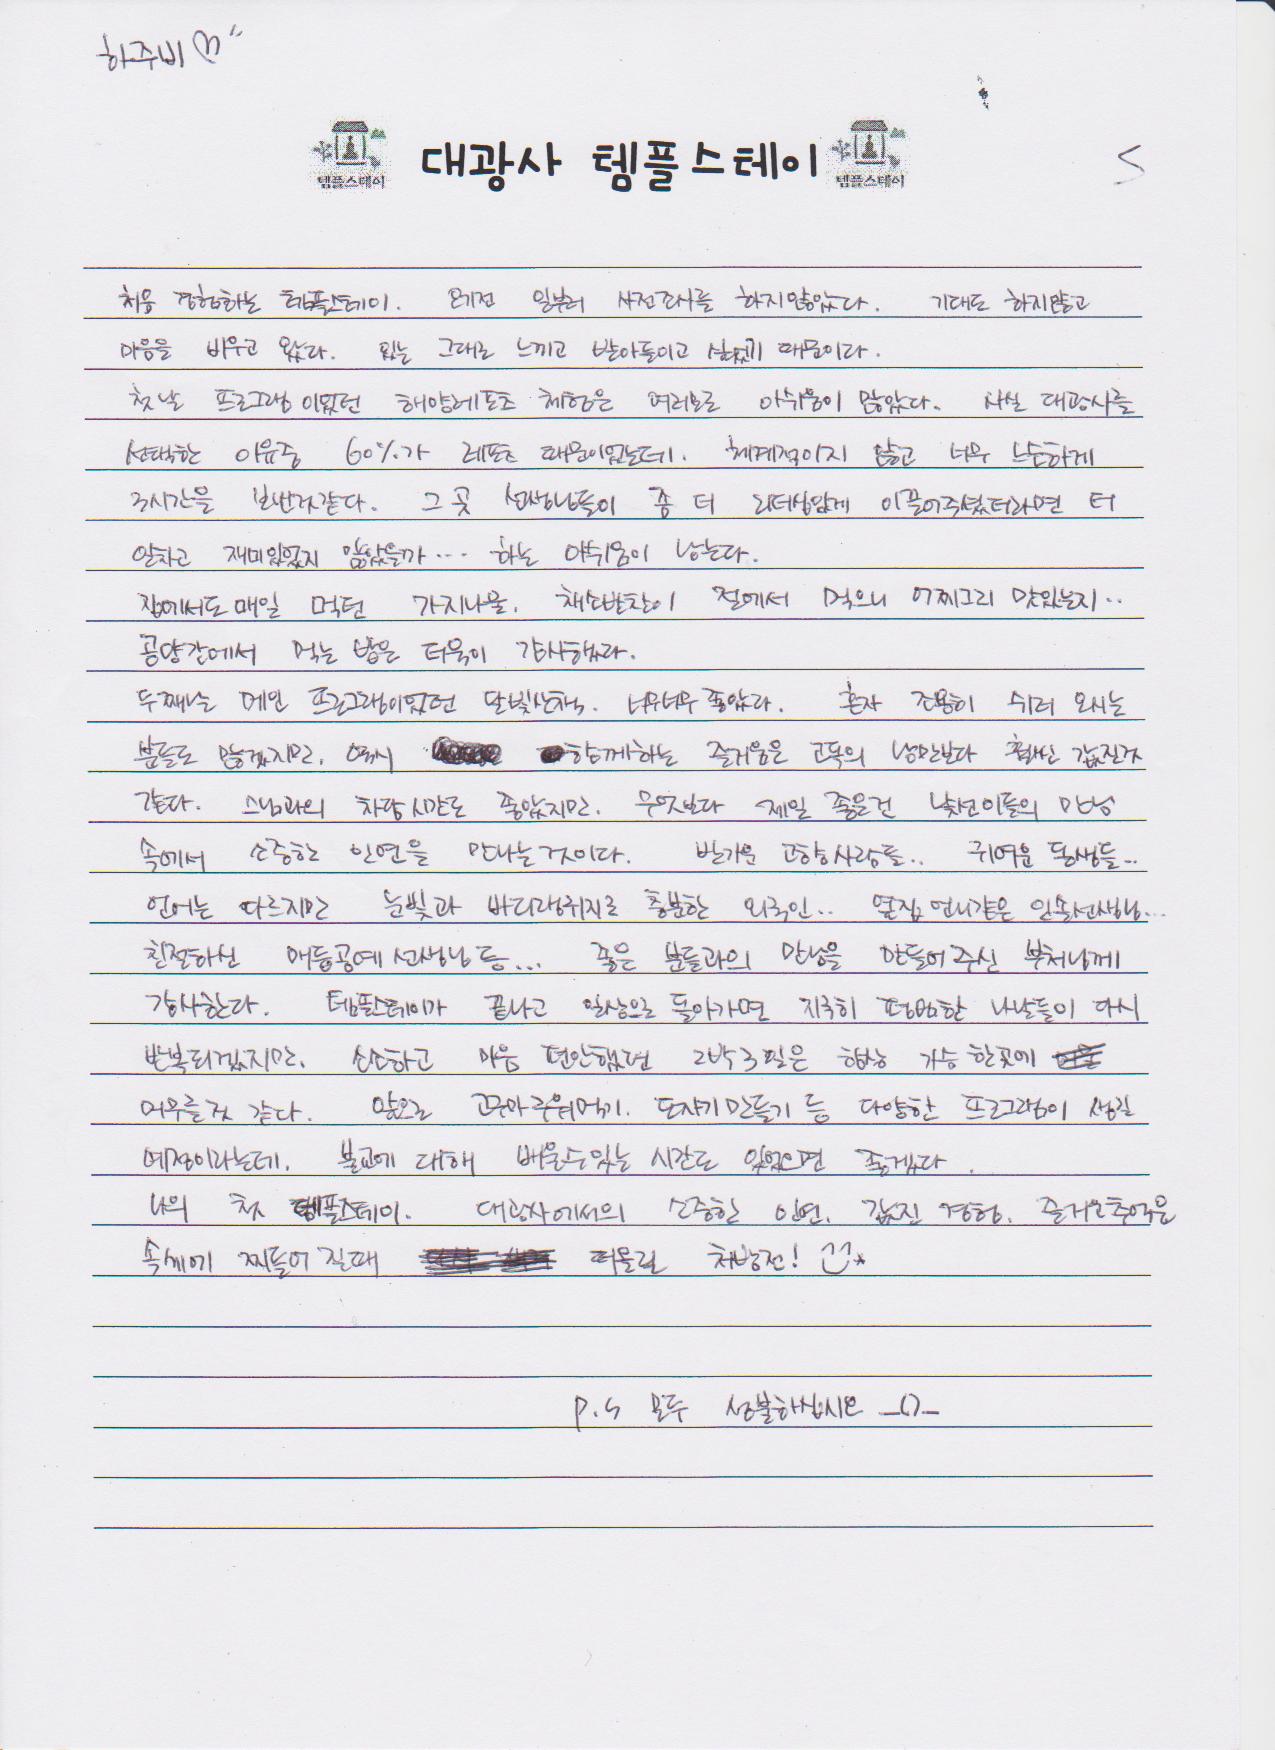 하주비♡"
대광사 템플스테이
템플스테이 템플스테이
5
처음 경험하는 템플스테이. 오기전 일부러 사전조사를 하지않았다. 기대도 하지않고
마음을 비우고 왔다. 있는 그대로 느끼고 받아들이고 싶었기 때문이다.
첫날 프로그램이었던 해양레포츠 체험은 여러모로 아쉬움이 많았다. 사실 대광사를
선택한 이유중 60%가 레포츠 때문이었는데. 체계적이지 않고 너무 느슨하게
3시간을 보낸것같다. 그 곳 선생님들이 좀 더 리더십있게 이끌어주셨더라면 더
알차고 재미있었지 않았을까... 하는 아쉬움이 남는다.
집에서도 매일 먹던 가지나물. 채소반찬이 절에서 먹으니 어찌그리 맛있는지..
공양간에서 먹는 밥은 더욱이 감사했다.
두째날 메인 프로그램이었던 달빛산책. 너무너무 좋았다. 혼자 조용히 쉬러 오시는
분들도 많겠지만. 역시 함께하는 즐거움은 고독의 낭만보다 훨씬 값진것
같다. 스님과의 차담시간도 좋았지만. 무엇보다 제일 좋은건 낯선이들의 만남
속에서 소중한 인연을 만나는것이다. 반가운 고향사람들.. 귀여운 동생들..
언어는 다르지만 눈빛과 바디랭귀지로 충분한 외국인.. 옆집 언니같은 선생님...
친절하신 매듭공예 선생님 등... 좋은 분들과의 만남을 만들어 주신 부처님께
감사한다. 템플스테이가 끝나고 일상으로 돌아가면 지극히 평범한 나날들이 다시
반복되겠지만. 소소하고 마음 편안했던 2박3일은 항상 가슴 한곳에
머무를것 같다. 앞으로 고구마구워먹기. 도자기만들기 등 다양한 프로그램이 생길
예정이라는데. 불교에 대해 배울수있는 시간도 있었으면 좋겠다.
나의 첫 템플스테이. 대광사에서의 소중한 인연. 값진 경험. 즐거운추억은
속세에 찌들어질때 떠올릴 처방전! ^^*
P.S 모두 성불하십시오 _()_